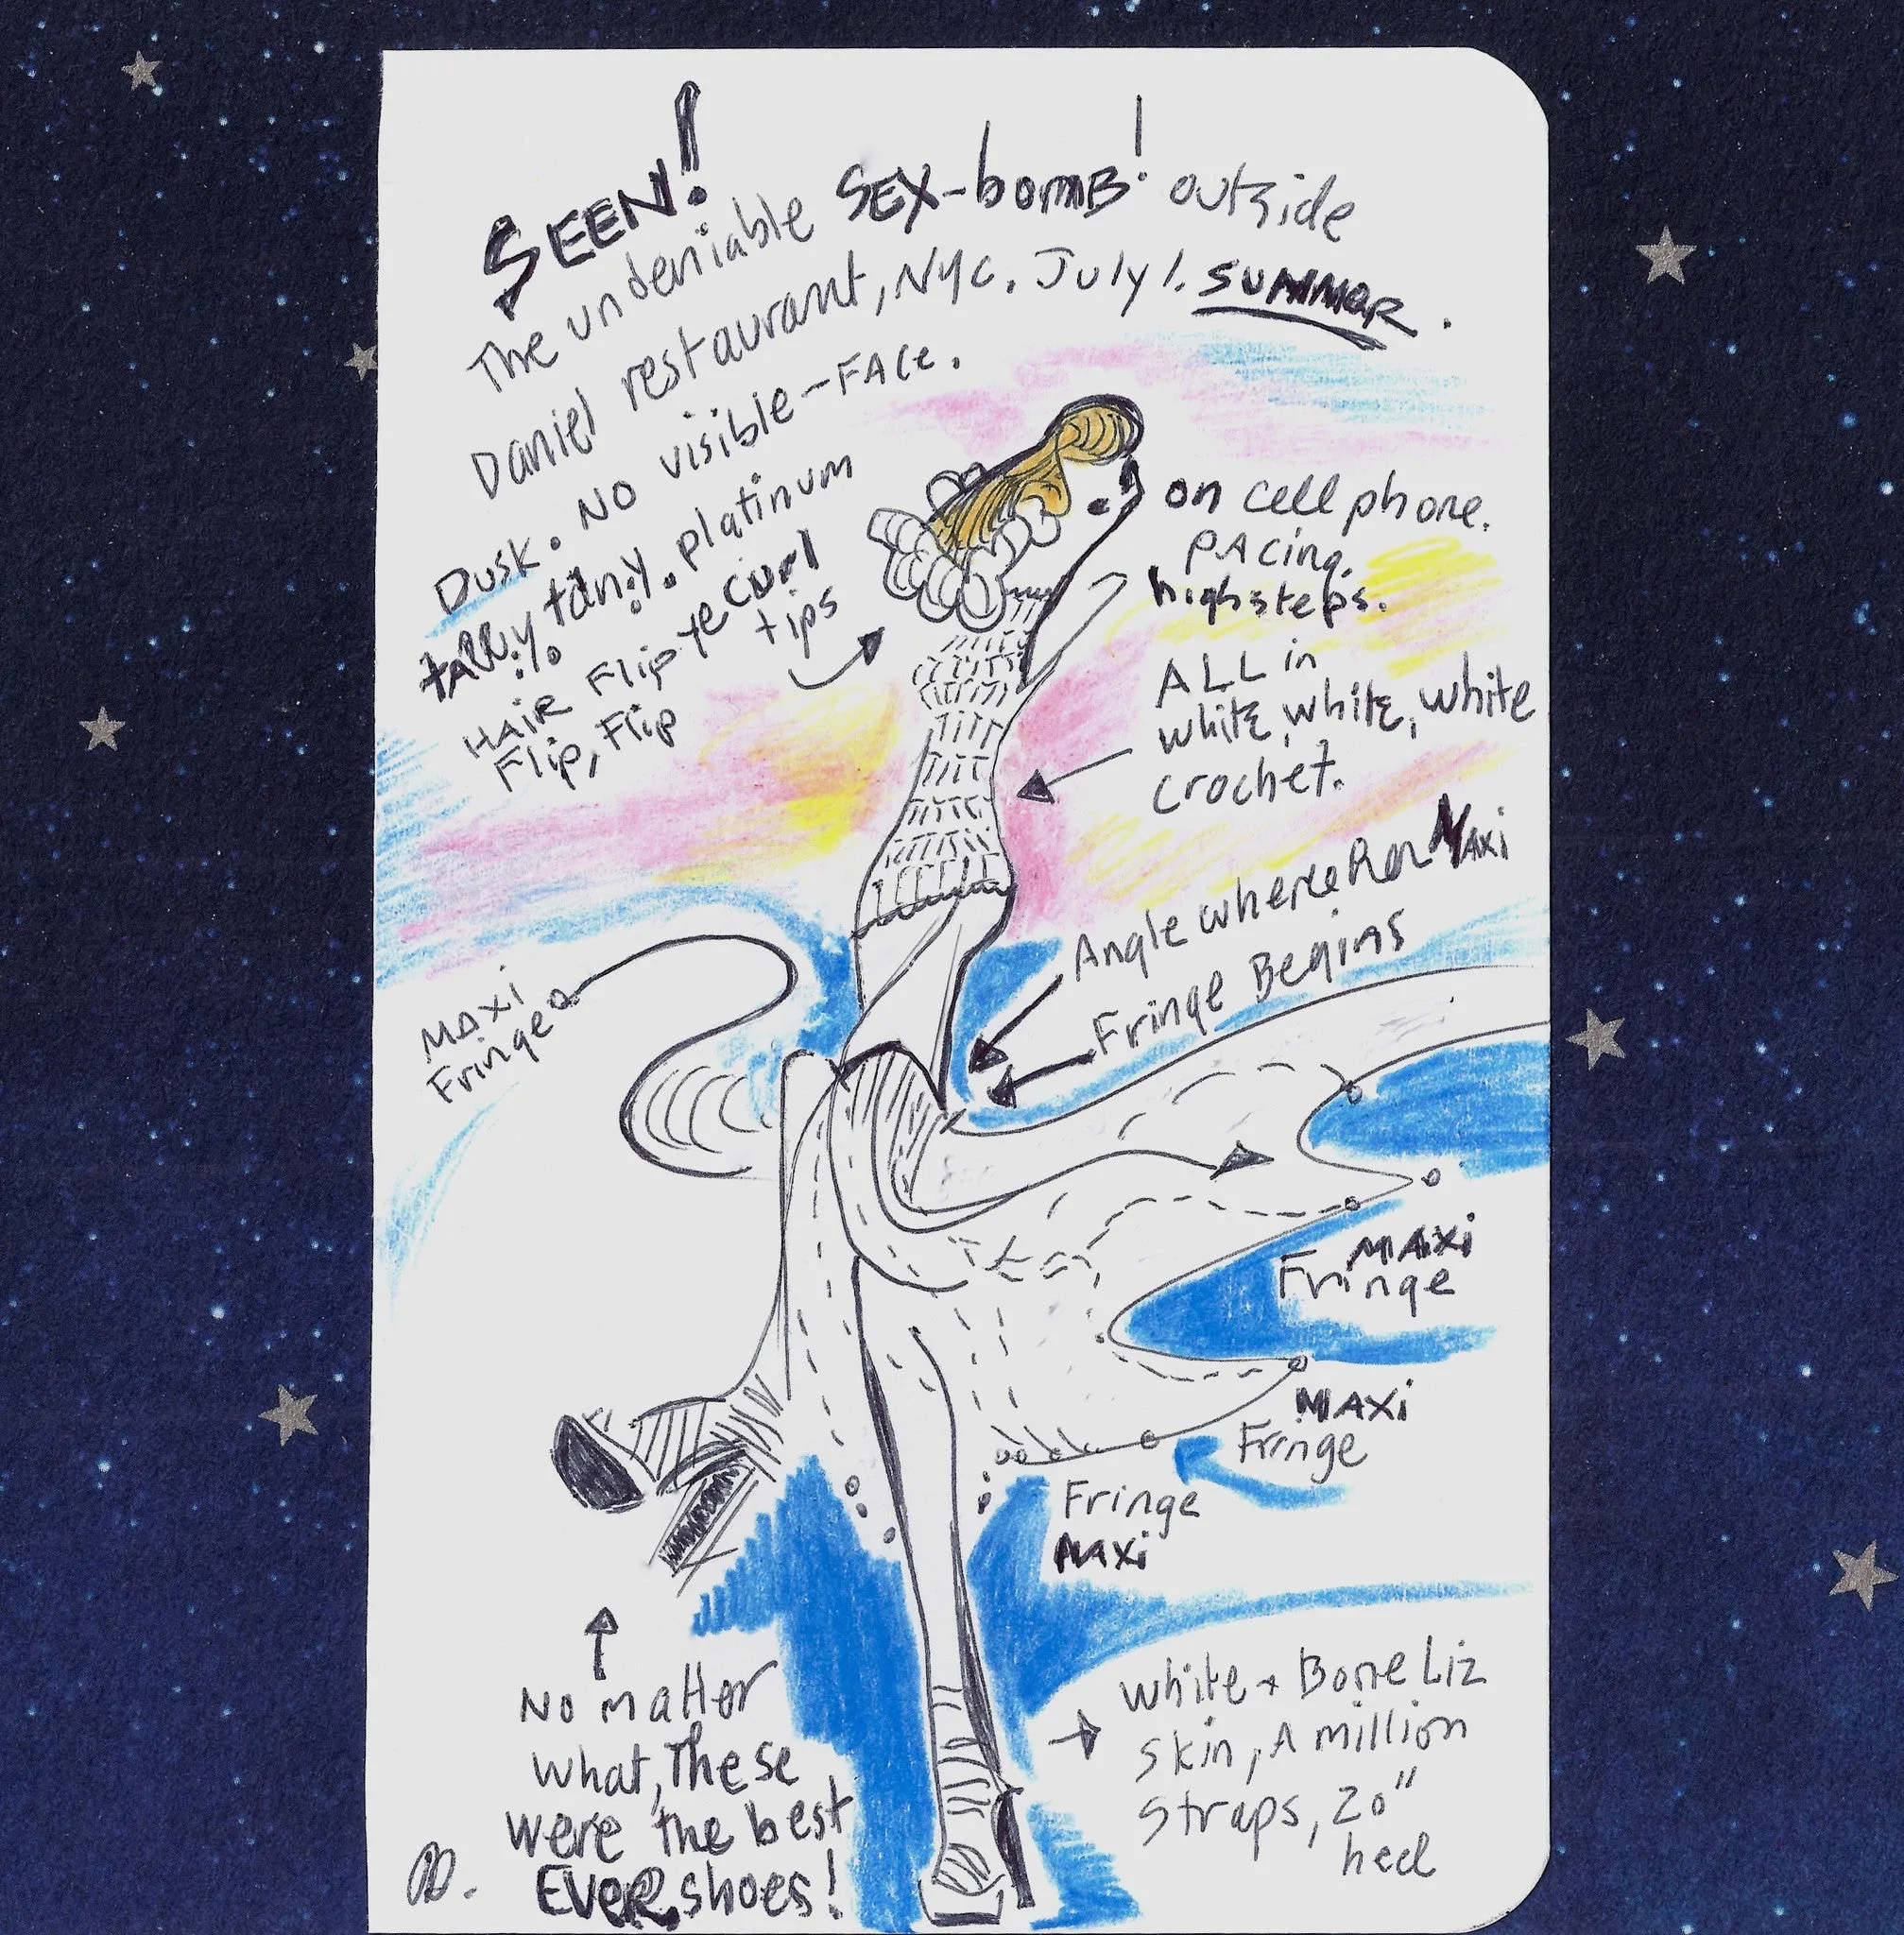 SEEN!
The undeniable SEX-bomb! outside
Daniel restaurant, NYC. July 1. SUMMER.
Dusk. No visible-FACE.
tany. platinum
HAIR Flip curl
Flip, Flip tips
on cell phone.
PAcing.
highsteps.
ALL in
white, white, white
crochet.
Angle where her MAxi
Fringe Begins
MAXi
Fringe
MAXi
Fringe
MAXi
Fringe
Fringe
MAXi
No matter
what, These
were the best
EVER shoes!
white + Bone Liz
skin, A million
straps, 20"
heel